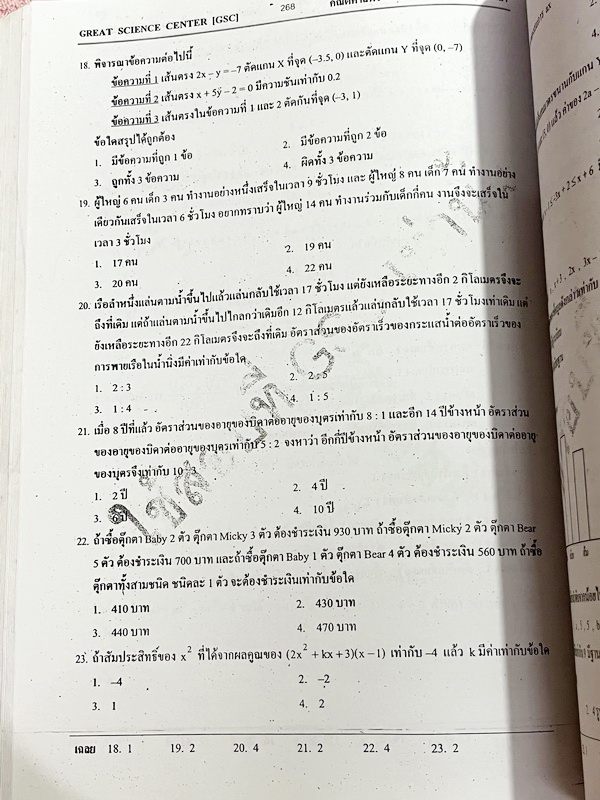 GREAT SCIENCE CENTER [GSC]
268
18. พิจารณาข้อความต่อไปนี้
ข้อความที่ 1 เส้นตรง 2x – y = –7 ตัดแกน X ที่จุด (–3.5, 0) และตัดแกน Y ที่จุด (0, –7)
ข้อความที่ 2 เส้นตรง x + 5y – 2 = 0 มีความชันเท่ากับ 0.2
ข้อความที่ 3 เส้นตรงในข้อความที่ 1 และ 2 ตัดกันที่จุด (–3, 1)
ข้อใดสรุปได้ถูกต้อง
1. มีข้อความที่ถูก 1 ข้อ 2. มีข้อความที่ถูก 2 ข้อ
3. ถูกทั้ง 3 ข้อความ 4. ผิดทั้ง 3 ข้อความ
19. ผู้ใหญ่ 6 คน เด็ก 3 คน ทำงานอย่างหนึ่งเสร็จในเวลา 9 ชั่วโมง และ ผู้ใหญ่ 8 คน เด็ก 7 คน ทำงานอย่าง
เดียวกันเสร็จในเวลา 6 ชั่วโมง อยากทราบว่า ผู้ใหญ่ 14 คน ทำงานร่วมกับเด็กกี่คน งานจึงจะเสร็จใน
เวลา 3 ชั่วโมง
1. 17 คน 2. 19 คน
3. 20 คน 4. 22 คน
20. เรือลำหนึ่งแล่นตามน้ำขึ้นไปแล้วแล่นกลับใช้เวลา 17 ชั่วโมง แต่ยังเหลือระยะทางอีก 2 กิโลเมตรจึงจะ
ถึงที่เดิม แต่ถ้าแล่นตามน้ำขึ้นไปไกลกว่าเดิมอีก 12 กิโลเมตรแล้วแล่นกลับใช้เวลา 17 ชั่วโมงเท่าเดิม แต่
ยังเหลือระยะทางอีก 22 กิโลเมตรจึงจะถึงที่เดิม อัตราส่วนของอัตราเร็วของกระแสน้ำต่ออัตราเร็วของ
การพายเรือในน้ำนิ่งมีค่าเท่ากับข้อใด
1. 2 : 3 2. 2 : 5
3. 1 : 4 4. 1 : 5
21. เมื่อ 8 ปีที่แล้ว อัตราส่วนของอายุของบิดาต่ออายุของบุตรเท่ากับ 8 : 1 และอีก 14 ปีข้างหน้า อัตราส่วน
ของอายุของบิดาต่ออายุของบุตรเท่ากับ 5 : 2 จงหาว่า อีกกี่ปีข้างหน้า อัตราส่วนของอายุของบิดาต่ออายุ
ของบุตรจึงเท่ากับ 10 : 3
1. 2 ปี 2. 4 ปี
3. 6 ปี 4. 10 ปี
22. ถ้าซื้อตุ๊กตา Baby 2 ตัว ตุ๊กตา Micky 3 ตัว ต้องชำระเงิน 930 บาท ถ้าซื้อตุ๊กตา Micky 2 ตัว ตุ๊กตา Bear
5 ตัว ต้องชำระเงิน 700 บาท และถ้าซื้อตุ๊กตา Baby 1 ตัว ตุ๊กตา Bear 4 ตัว ต้องชำระเงิน 560 บาท ถ้าซื้อ
ตุ๊กตาทั้งสามชนิด ชนิดละ 1 ตัว จะต้องชำระเงินเท่ากับข้อใด
1. 410 บาท 2. 430 บาท
3. 440 บาท 4. 470 บาท
23. ถ้าสัมประสิทธิ์ของ x² ที่ได้จากผลคูณของ (2x² + kx + 3)(x – 1) เท่ากับ –4 แล้ว k มีค่าเท่ากับข้อใด
1. –4 2. –2
3. 1 4. 2
เฉลย 18. 1 19. 2 20. 4 21. 2 22. 4 23. 2